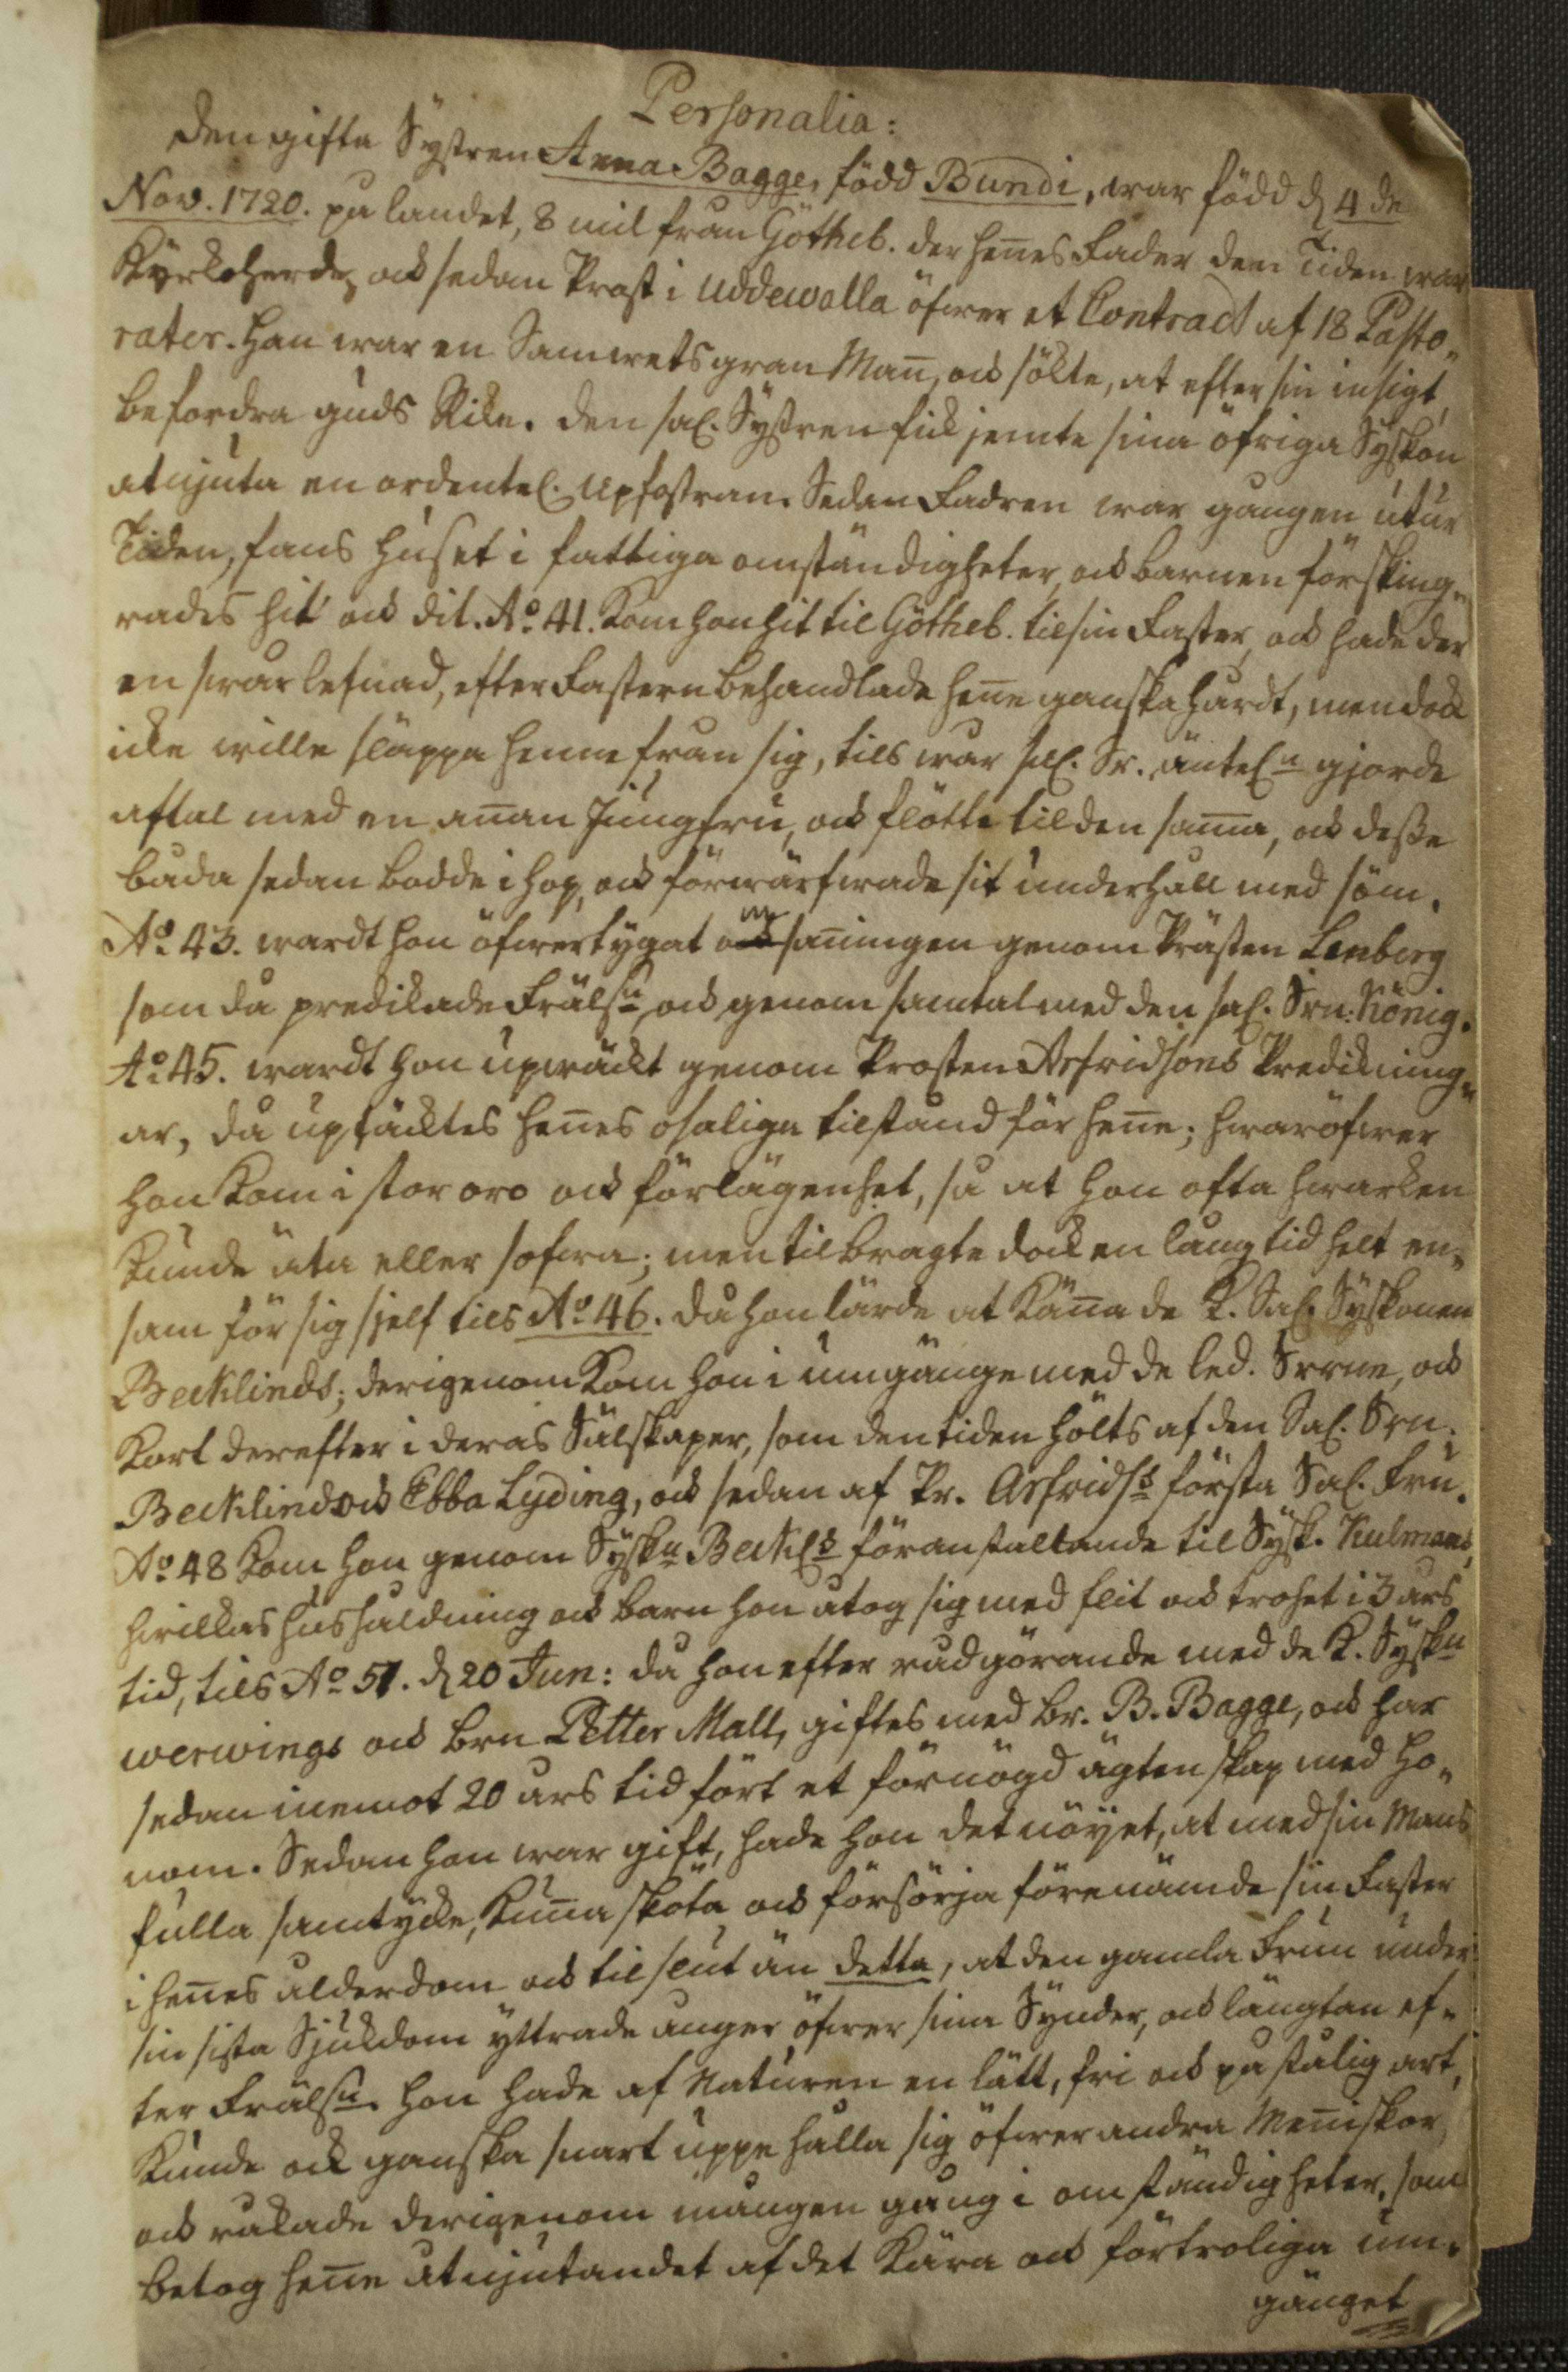 Personalia:
Den gifta Systren Anna Bagge, född Bundi, war född d. 4 de
Nov. 1720. på landet, 8 mil från Götheb. der hen̄es Fader den Tiden war
Kyrkoherde, och sedan Prost i Uddewalla öfwer et Contract af 18 Pasto„
rater. Han war en Samwetsgran Man̄, och sökte, at efter sin insigt,
befordra Guds Rike. Den sal. Systren fick jemte sina öfriga Syskon
åtnjuta en ordentel. Upfostran. Sedan Fadren war gången utur
Tiden, fans huset i fattiga omständigheter, och barnen försking„
rades hit och dit. Ao. 41. kom hon hit til Götheb. til sin Faster, och hade der
en swår lefnad, efter Fastern behandlade hen̄e ganska hårdt, men dock
icke wille släppa henne från sig, tils wår sel. Sr. äntel:n gjorde
aftal med en an̄an Jungfru, och flötte til den sam̄a, och desse
båda sedan bodde ihop, och förwärfwade sit underhåll med söm.
Ao 43. wardt hon öfwertygat om san̄ingen genom Prästen Lenberg
som då predikade Frälsn, och genom samtal med den sal. Srn: König.
Ao 45. wardt hon upwäckt genom Prosten Arfridsons Predikning„
ar, då uptäcktes hen̄es osaliga tilstånd för hen̄e; hwaröfwer
hon kom i stor oro och förlägenhet, så at hon ofta hwarken
kunde äta eller sofwa; men tilbragte dock en lång tid helt en„
sam för sig sjelf tils Ao 46. då hon lärde at kän̄a de K. Sal. Syskonen
Becklinds; derigenom kom hon i umgänge med de led. Srrne, och
kort derefter i deras Sälskaper, som den tiden hölts af den Sal. Srn.
Becklind och Ebba Lyding, och sedan af Pr. Arfrids:s första Sal. Fru.
Ao 48 kom hon genom Syskn Beckl:s föranstaltande til Sysk. Kulmans,
hwilkas hushåldning och barn hon åtog sig med flit och trohet i 3 års
tid, tils Ao 51. d. 20 Jun: då hon efter rådgörande med de K. Syskn
werwings och brn Petter Mall, giftes med br. B. Bagge, och har
sedan inemot 20 års tid fört et förnögd ägtenskap med ho„
nom. Sedan hon war gift, hade hon det nöyet, at med sin Mans
fulla samtycke, kun̄a sköta och försörja förenämde sin Faster
i hen̄es ålderdom och til slut än detta, at den gamla Frun under
sin sista Sjukdom yttrade ånger öfwer sina Synder, och längtan ef„
ter Frälsn. Hon hade af Naturen en lätt, fri och påstålig art,
kunde ock ganska snart uppehålla sig öfwer andra Men̄iskor
och råkade derigenom mången gång i omständigheter, som
betog hen̄e åtnjutandet af det kära och förtroliga um„
gänget